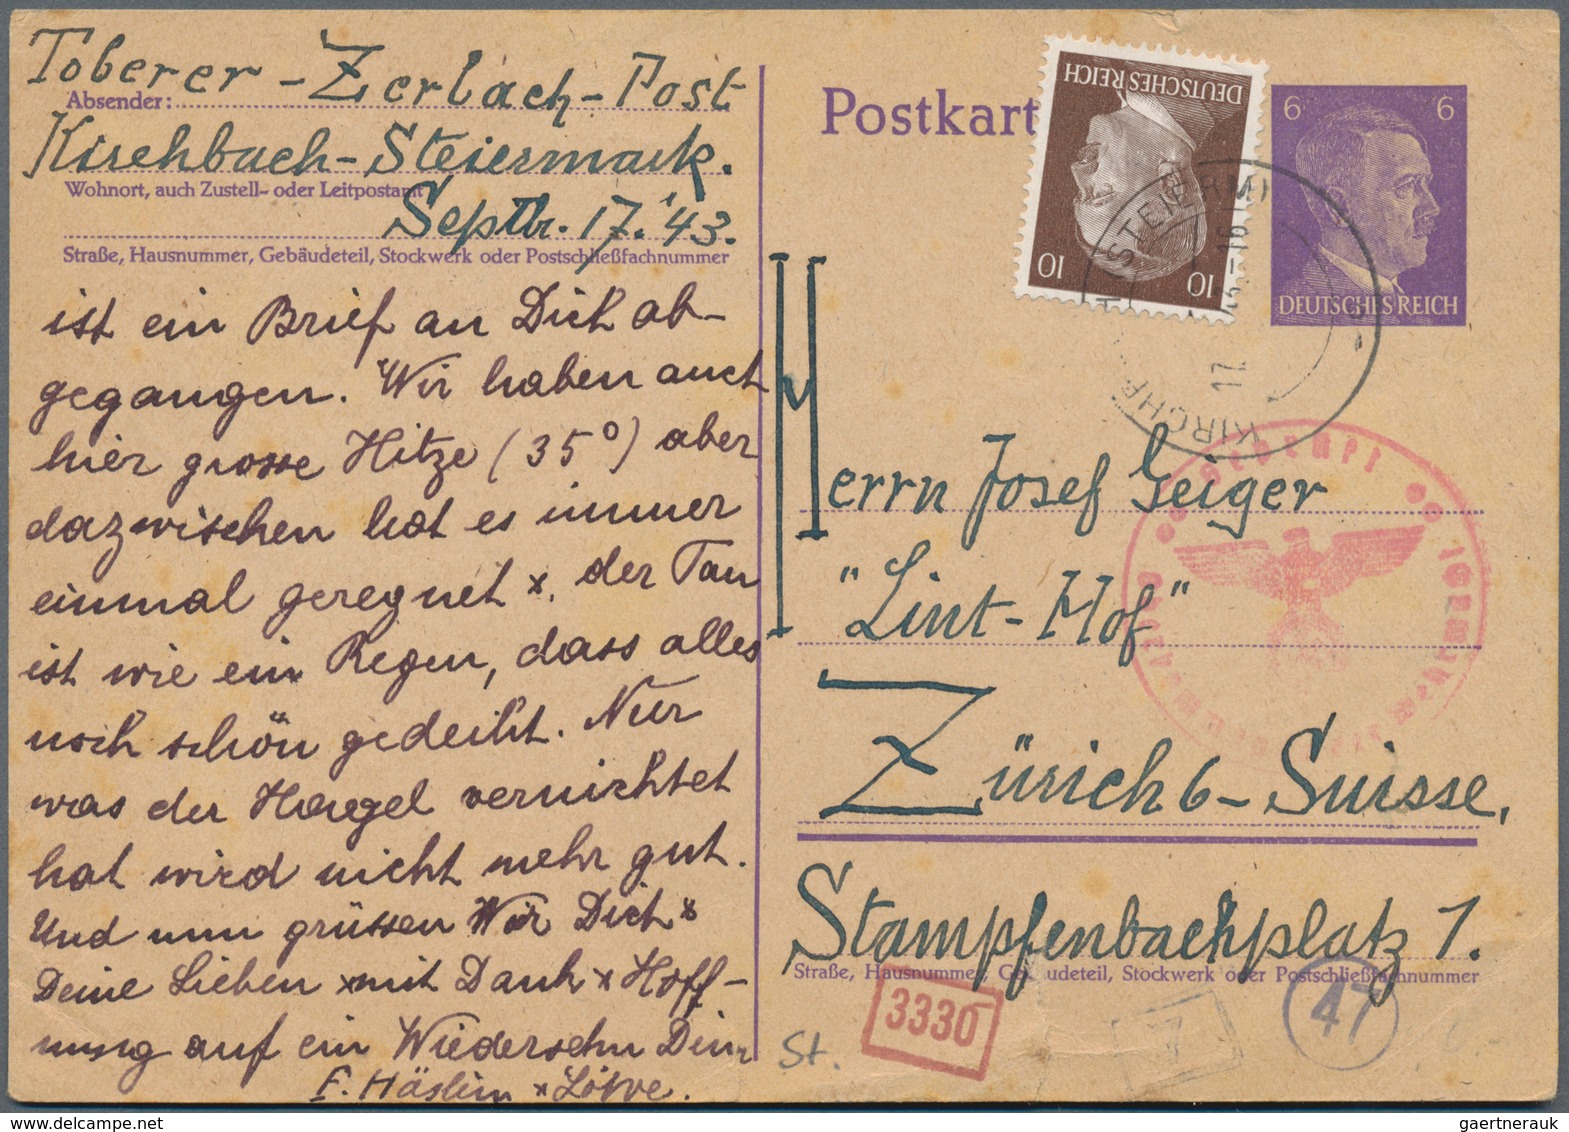 Toberer - Zerlach - Post
Absender:
Kirchbach - Steiermark.
Wohnort, auch Zustell- oder Leitpostamt
Septbr. 17. '43.
Straße, Hausnummer, Gebäudeteil, Stockwerk oder Postschließfachnummer
ist ein Brief an Dich ab-
gegangen. Wir haben auch
hier grosse Hitze (35°) aber
dazwischen hat es immer
einmal geregnet x. der Tau
ist wie ein Regen, dass alles
noch schön gedeiht. Nur
was der Hagel vernichtet
hat wird nicht mehr gut.
Und nun grüssen Wir Dich x
Deine Lieben x mit Dank x Hoff-
nung auf ein Wiedersehn Dein
F. Häslein x Löwe.
Postkart
DEUTSCHES REICH
10 10
6 6
DEUTSCHES REICH
KIRCHB
STEIERM
17.
-16
Herrn Josef Geiger
"Lint-Hof"
Zürich 6 - Suisse,
Stampfenbachplatz 1.
Straße, Hausnummer, Gebäudeteil, Stockwerk oder Postschließfachnummer
St.
3330
47
gaertnerauk.com